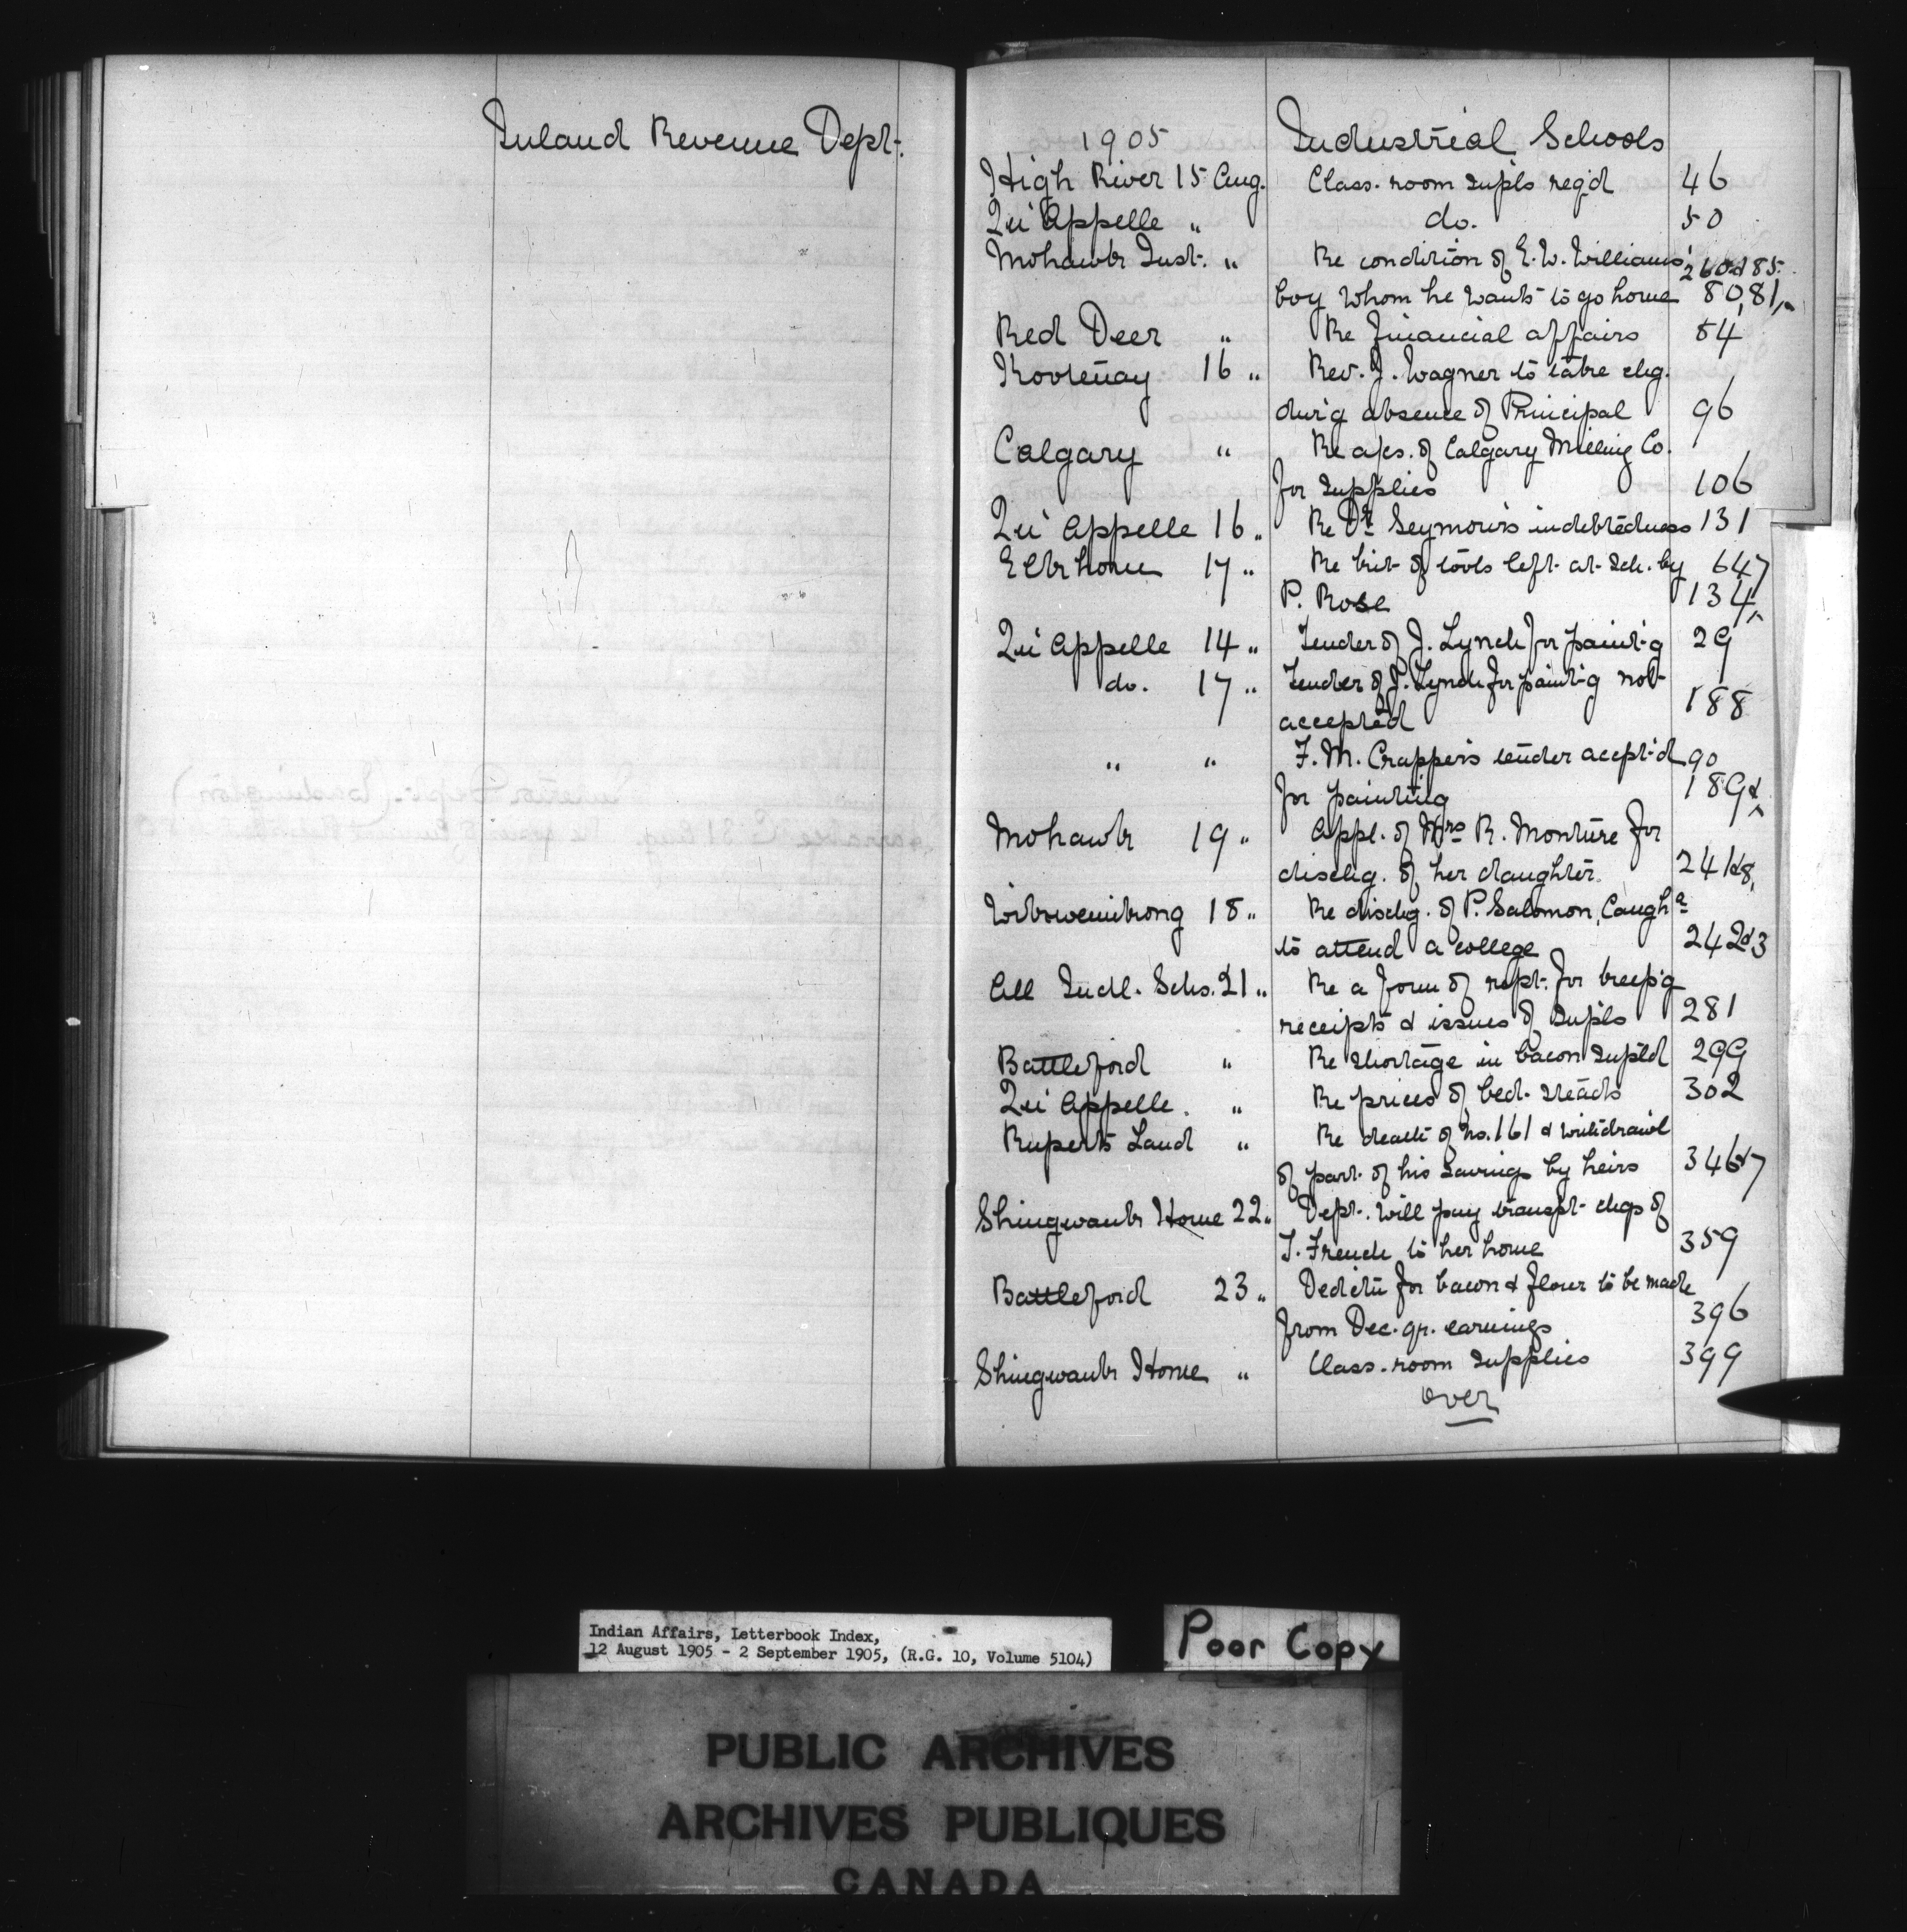 Inland Revenue Dept.
1905 Industrial Schools
High River 15 Aug. Class-room supls reqd 46
Qu'Appelle " do. 50
Mohawk Inst. " Re condition of E. W. Williams' 260 & 85
boy whom he wants to go home 80,81,
Red Deer " Re financial affairs 84
Kootenay 16 " Rev. J. Wagner to take chg.
dur'g absence of Principal 96
Calgary " Re a/cs. of Calgary Milling Co.
for supplies 106
Qu'Appelle 16 " Re Dr Seymour's indebtedness 131
Elkhorn 17 " Re kit of tools left at sch. by 647
P. Rose 134
Qu'Appelle 14 " Tender of J. Lynch for paint-g 29
do. 17 " Tender of J. Lynch for paint-g not
accepted 188
" " F. M. Crapper's tender accept-d 90
for painting 189 &
Mohawk 19 " Appl. of Mrs R. Monture for
dischg. of her daughter 241 & 8,
Wikwemikong 18 " Re dischg. of P. Salomon, Caugha
to attend a college 242 & 3
All Indl. Schs. 21 " Re a form of rept. for keep'g
receipts & issues of supls 281
Battleford " Re shortage in bacon supld 299
Qu'Appelle. " Re prices of bed-steads 302
Ruperts Land " Re death of No. 161 & withdrawl
of part of his savings by heirs 346 & 7
Shingwauk Home 22 " Dept. will pay transpt- chgs of
French to her home 359
Battleford 23 " Dedctn for bacon & flour to be made
from Dec. qr. earnings 396
Shingwauk Home " Class-room supplies 399
over
Indian Affairs, Letterbook Index,
12 August 1905 - 2 September 1905, (R.G. 10, Volume 5104)
Poor Copy
PUBLIC ARCHIVES
ARCHIVES PUBLIQUES
CANADA